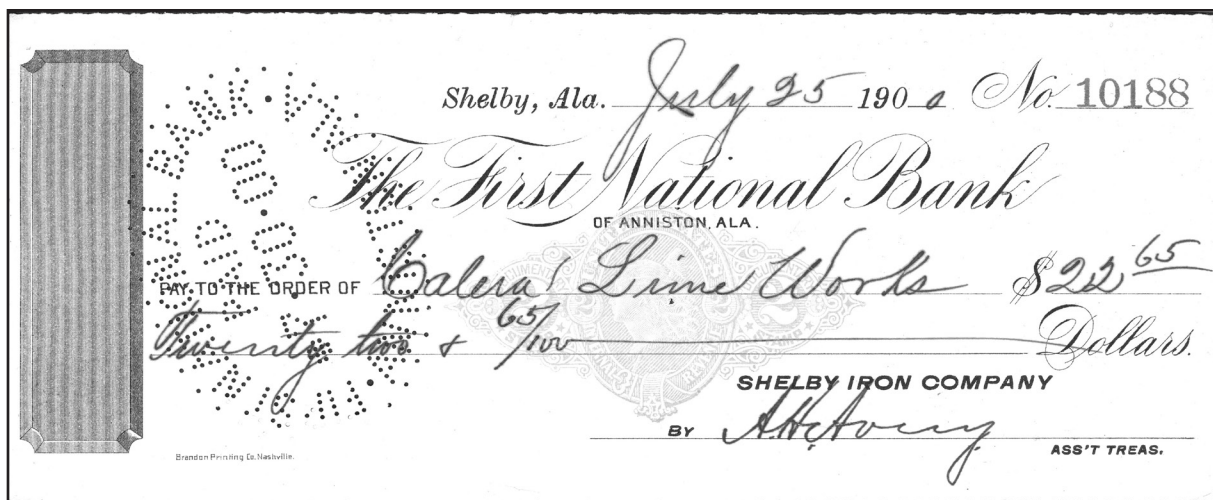 Shelby, Ala. July 25 1900 No. 10188
The First National Bank
OF ANNISTON, ALA.
PAY TO THE ORDER OF Calera Lime Works $22 65
Twenty two & 65/100 Dollars.
SHELBY IRON COMPANY
BY A.H. Avery
ASS'T TREAS.
Brandon Printing Co. Nashville.